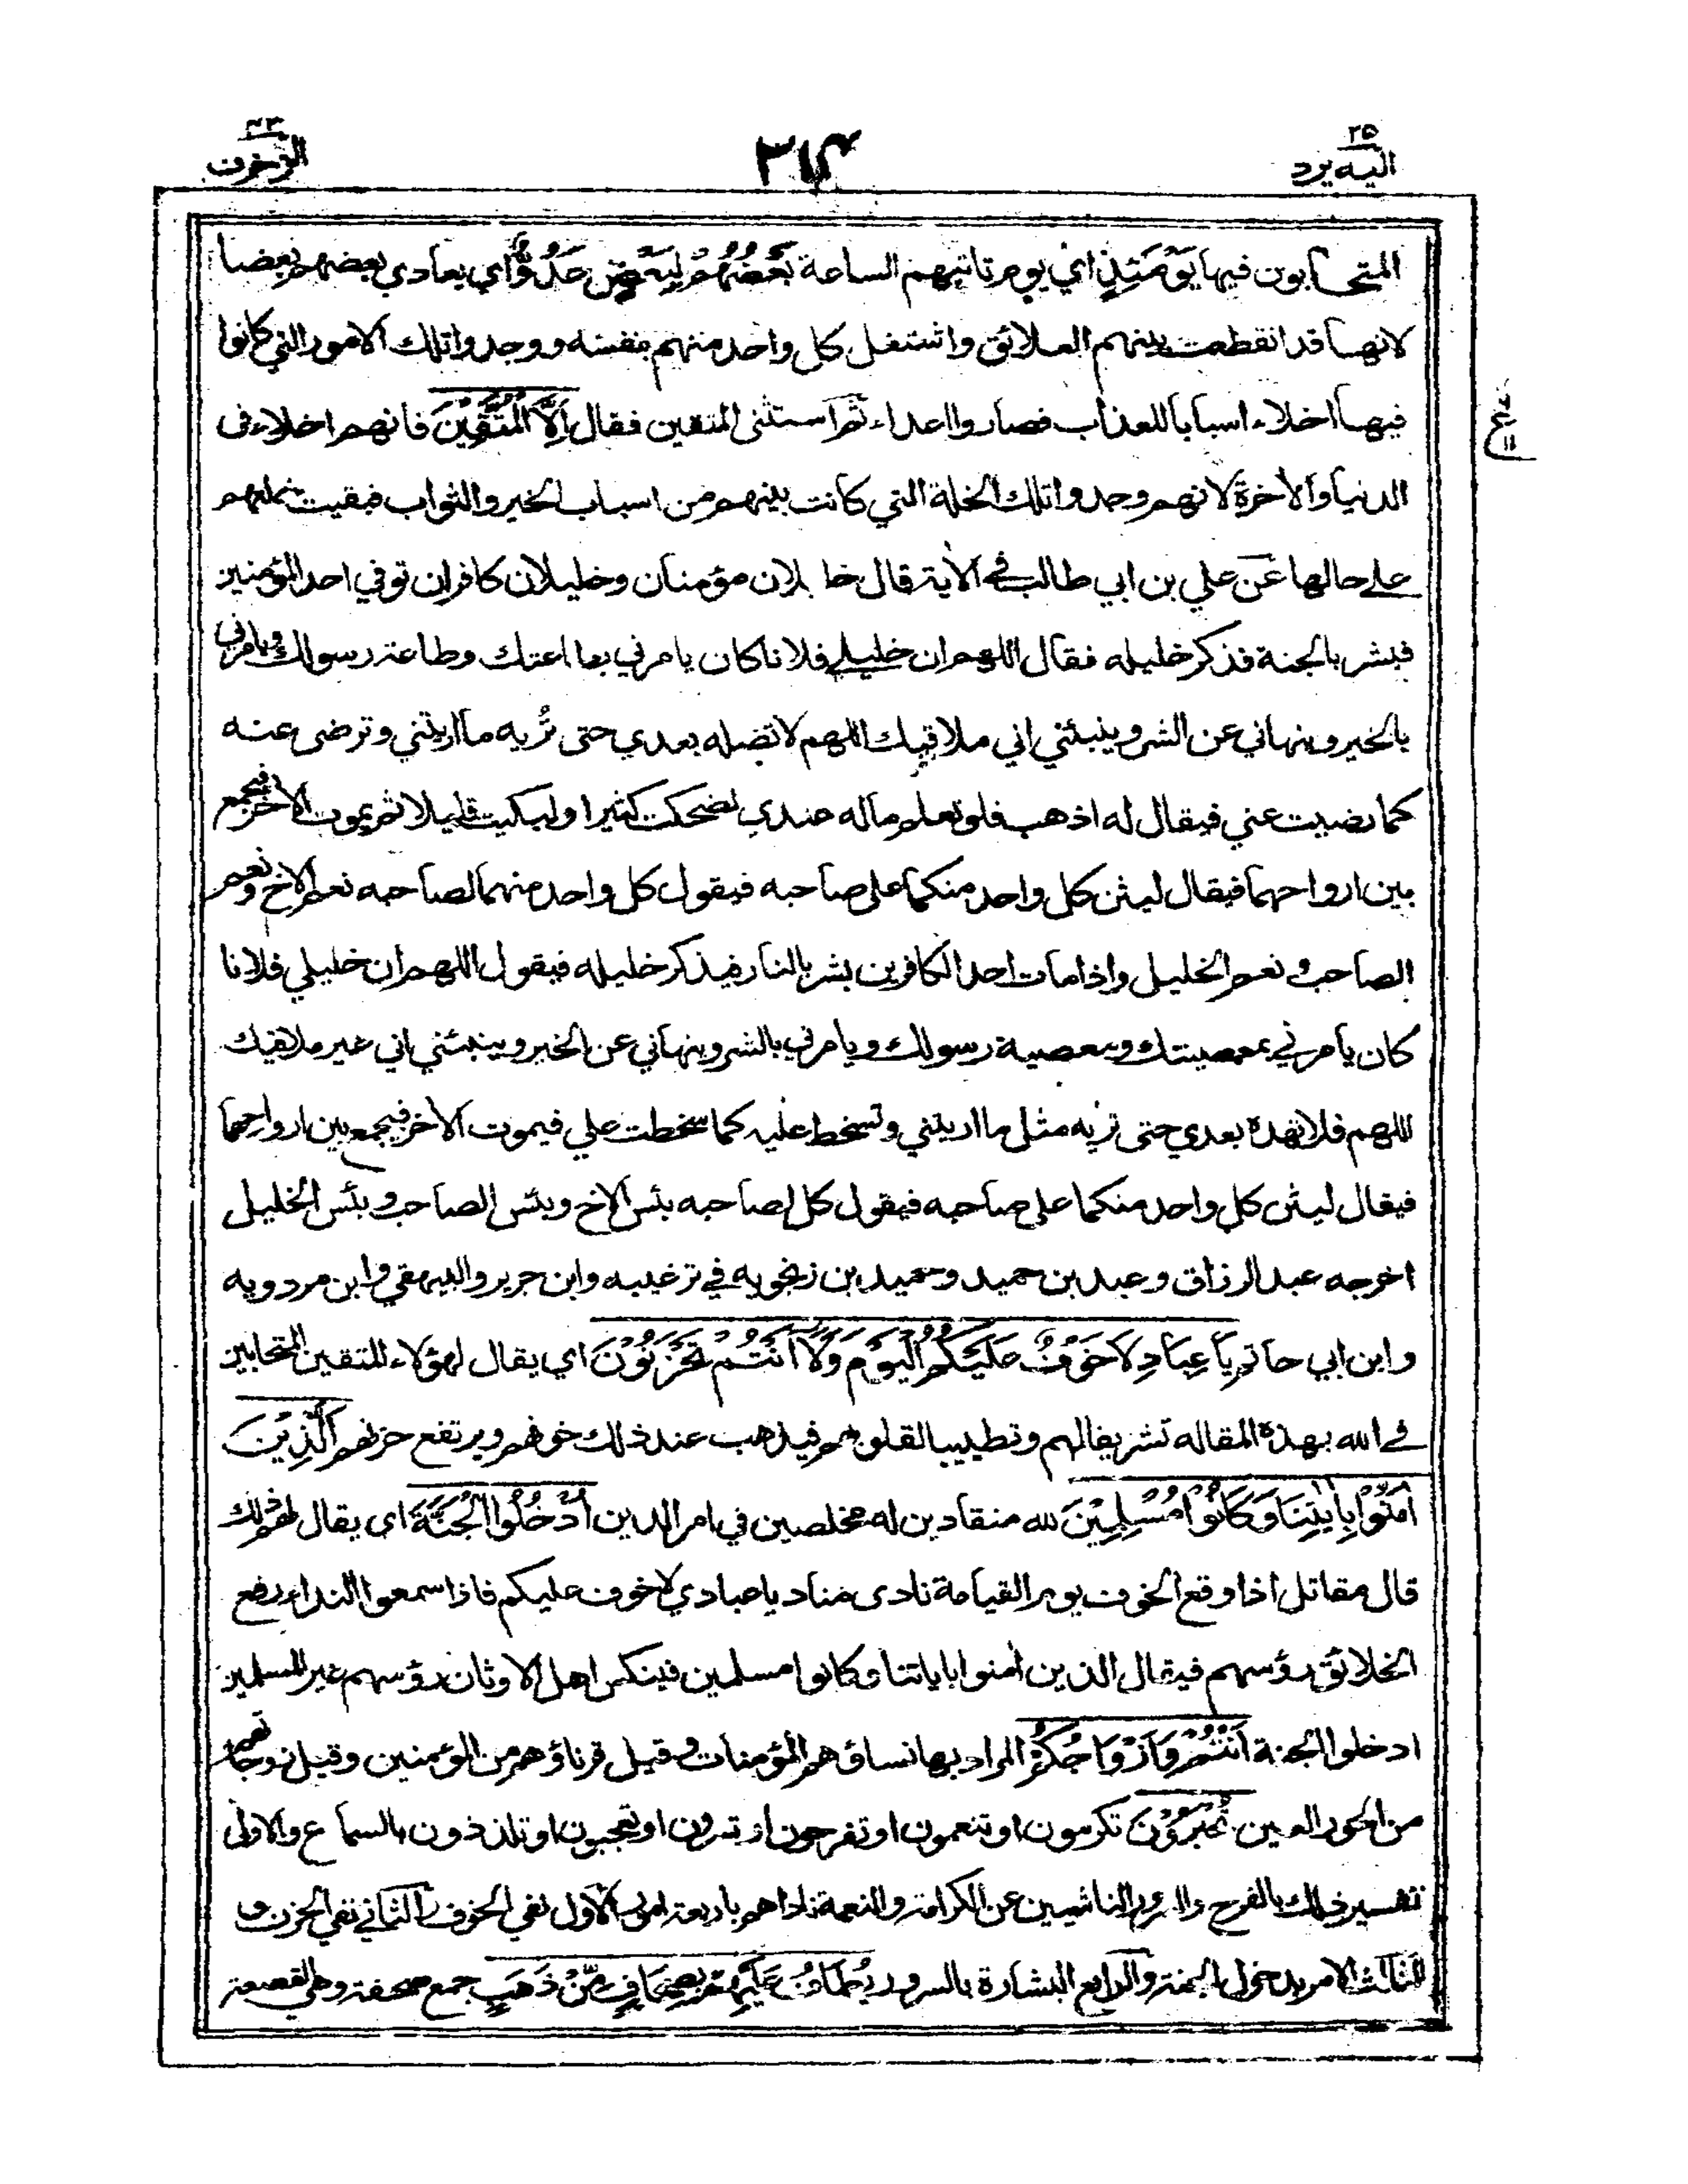 ٢٥
اليه يرد
٣١٤
٤٣
الزخرف
المتحابون فيها يَوْمَئِذٍ اي يوم تاتيهم الساعة بَعْضُهُمْ لِبَعْضٍ عَدُوٌّ اي يعادي بعضهم بعضا
لانها قد انقطعت بينهم العلائق واشتغل كل واحد منهم بنفسه ووجدوا تلك الامور التي كانوا
فيها اخلاء اسبابا للعذاب فصاروا اعداء ثم استثنى المتقين فقال اِلَّا الْمُتَّقِيْنَ فانهم اخلاء فى
الدنيا والآخرة لانهم وجدوا تلك الخلة التي كانت بينهم من اسباب الخير والثواب فبقيت خلتهم
على حالها عن علي بن ابي طالب في الآية قال خليلان مؤمنان وخليلان كافران توفي احد المؤمنين
فبشر بالجنة فذكر خليله فقال اللهم ان خليلي فلانا كان يامرني بطاعتك وطاعة رسولك ويامرني
بالخير وينهاني عن الشر وينبئني اني ملاقيك اللهم لا تضله بعدي حتى تُريه ما اريتني وترضى عنه
كما رضيت عني فيقال له اذهب فلو تعلم ماله عندي لضحكت كثيرا ولبكيت قليلا ثم يموت الآخر فيجمع
بين ارواحهما فيقال ليثن كل واحد منكما على صاحبه فيقول كل واحد منهما لصاحبه نعم الاخ ونعم
الصاحب ونعم الخليل واذا مات احد الكافرين بشر بالنار فيذكر خليله فيقول اللهم ان خليلي فلانا
كان يامرني بمعصيتك ومعصية رسولك ويامرني بالشر وينهاني عن الخير وينبئني اني غير ملاقيك
اللهم فلا تهده بعدي حتى تريه مثل ما اريتني وتسخط عليه كما سخطت علي فيموت الآخر فيجمع بين ارواحهما
فيقال ليثن كل واحد منكما على صاحبه فيقول كل لصاحبه بئس الاخ وبئس الصاحب وبئس الخليل
اخرجه عبد الرزاق وعبد بن حميد وحميد بن زنجويه في ترغيبه وابن جرير والبيهقي وابن مردويه
وابن ابي حاتم يَا عِبَادِ لَا خَوْفٌ عَلَيْكُمُ الْيَوْمَ وَلَا اَنْتُمْ تَحْزَنُوْنَ اي يقال لهؤلاء المتقين المتحابين
في الله بهذه المقاله تشريفا لهم وتطييبا لقلوبهم فيذهب عند ذلك خوفهم ويرتفع حزنهم اَلَّذِيْنَ
اٰمَنُوْا بِاٰيٰتِنَا وَكَانُوْا مُسْلِمِيْنَ لله منقادين له مخلصين في امر الدين اُدْخُلُوا الْجَنَّةَ اى يقال لهم ذلك
قال مقاتل اذا وقع الخوف يوم القيامة نادى مناد يا عبادي لا خوف عليكم فاذا سمعوا النداء رفع
الخلائق رؤسهم فيقال الذين اٰمنوا باياتنا وكانوا مسلمين فينكس اهل الاوثان رؤسهم غير المسلمين
ادخلوا الجنة اَنْتُمْ وَاَزْوَاجُكُمْ المراد بها نساؤهم المؤمنات وقيل قرناؤهم من المؤمنين وقيل زوجاتهم
من الحور العين تُحْبَرُوْنَ تكرمون او تنعمون او تفرحون او تسرون او تعجبون او تلذذون بالسماع والاولى
تفسير ذلك بالفرح والسرور الناشيين عن الكرامة والنعمة ناداهم باربعة امور الاول نفي الخوف والثاني نفي الحزن و
الثالث الامر بدخول الجنة والرابع البشارة بالسرور يُطَافُ عَلَيْهِمْ بِصِحَافٍ مِّنْ ذَهَبٍ جمع صحفة وهي القصعة